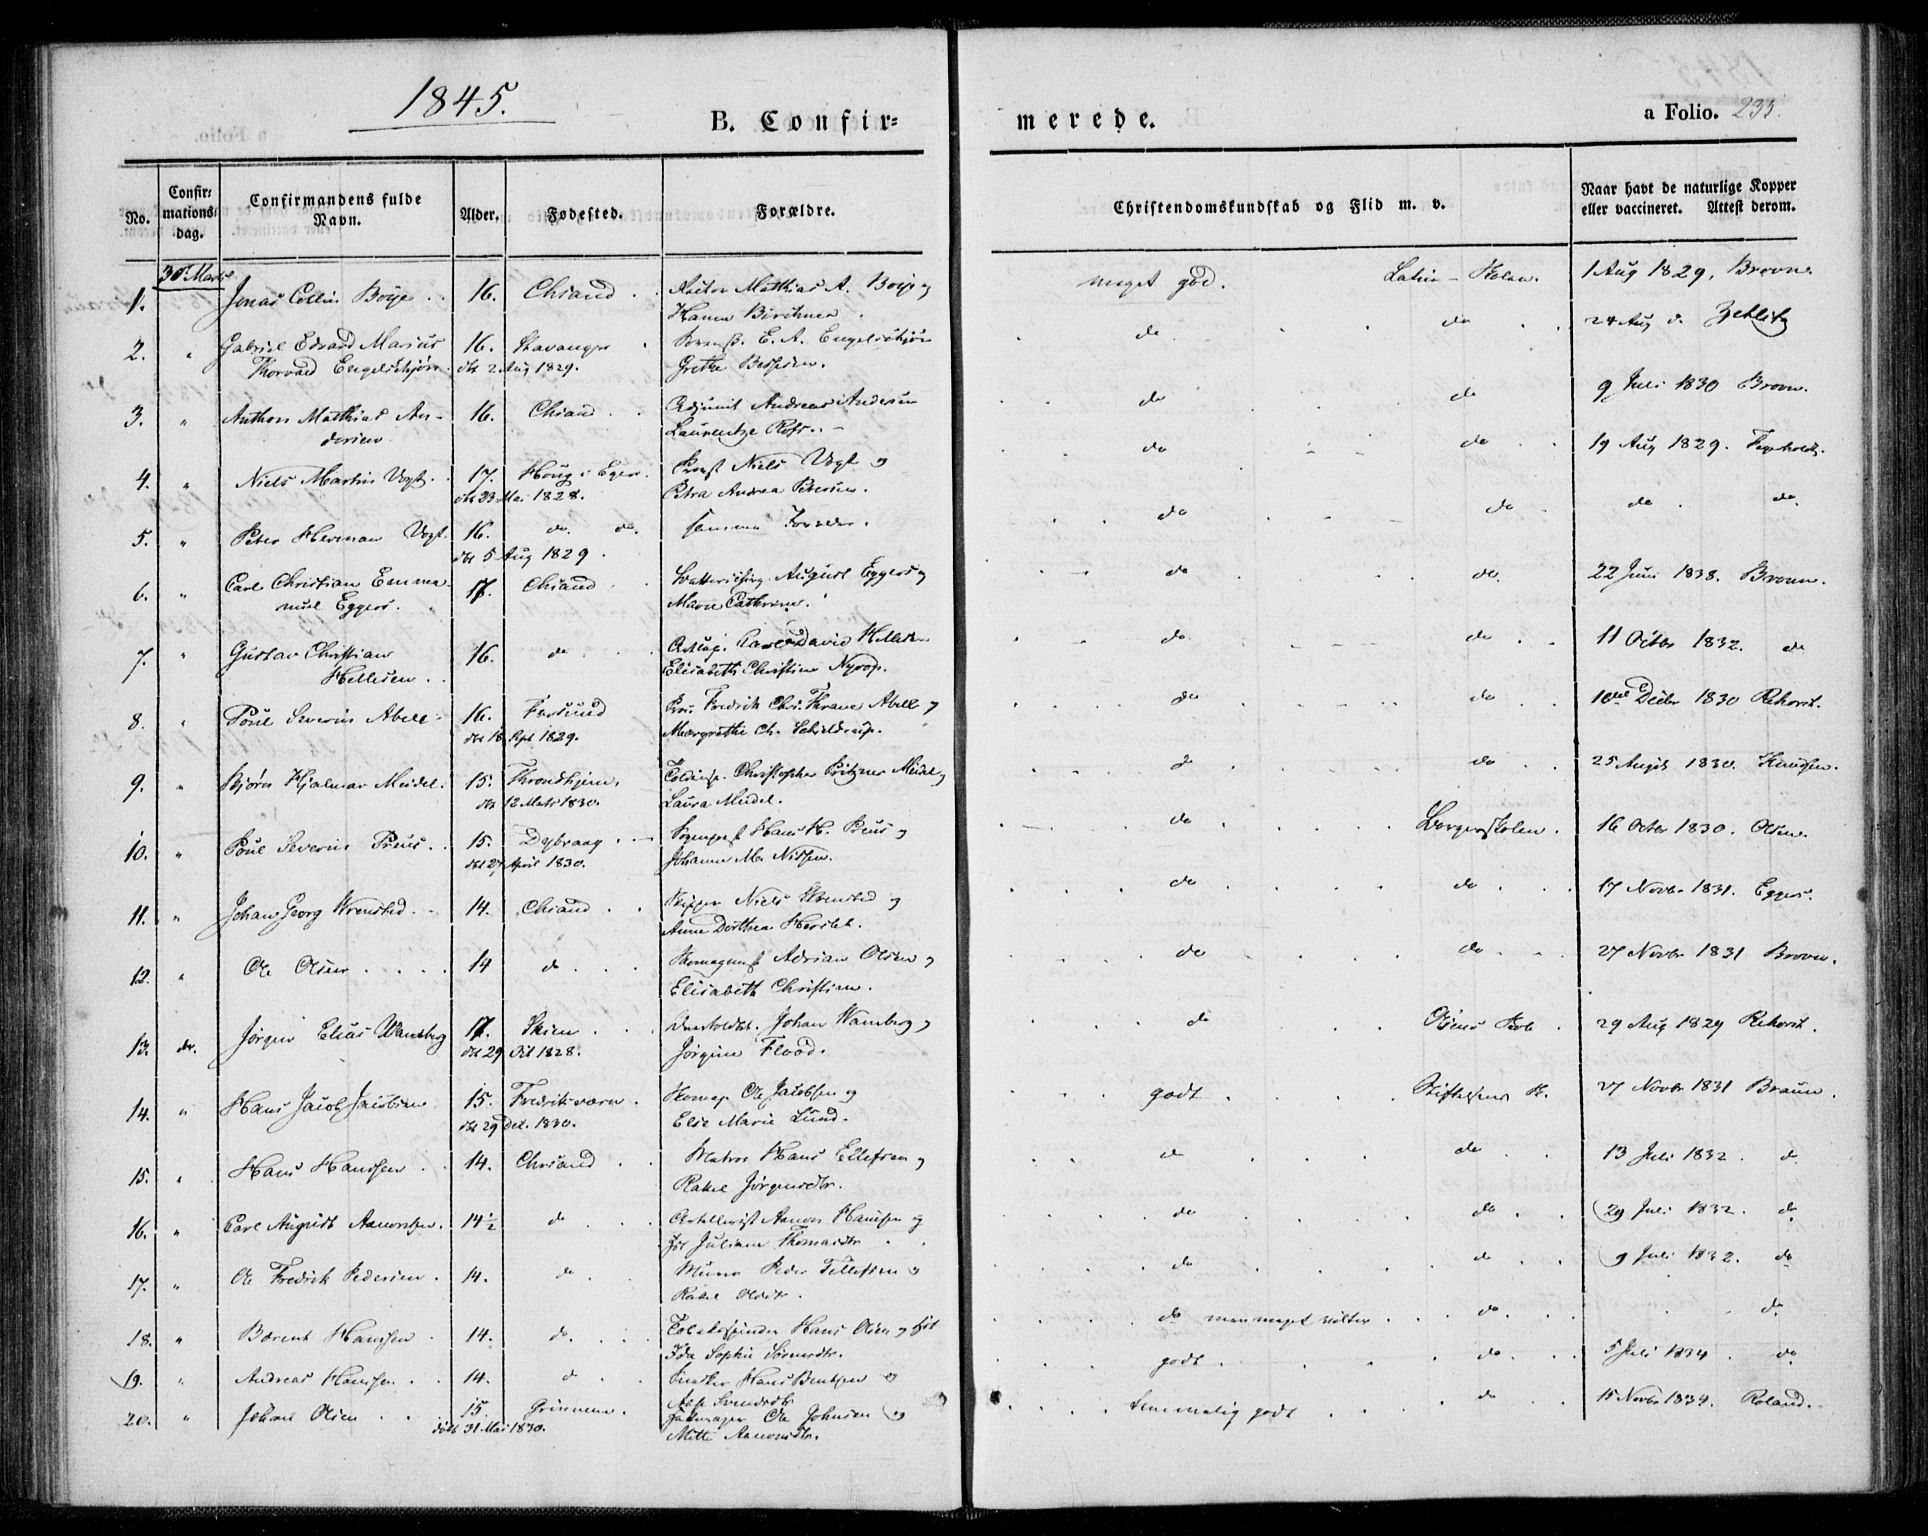 1845.
B. Confir=
merede.
a Folio. 233.
No. Confir= mations= dag. Confirmandens fulde Navn. Alder. Fodested. Forældre. Christendomskundskab og Flid m. v. Naar havt de naturlige Kopper eller vaccineret. Attest derom.
30 Marts
1. Jonas Collin Boije 16. Chsand Mathias A. Boije og meget god. Latin- Skolen. 1 Aug 1829. Brovn.
Hanna
2. " Gabriel Edvard Marius 16. Stavanger E. A. Engelschjøn do do 24 Aug d. Zetlitz
Thorvald Engelschjøn. dbt 2 Aug 1829. Grethe
3. " Anthon Mathias An- 16. Chsand Adjunct Andreas Andersen do do 9 Juli 1830 Brovn.
dersen Laurentze
4. " Niels Martin Vogt. 17. Houg i Eger. Provst Niels Vogt og do do 19 Aug 1829.
dbt 23 Mai 1828. Petra Andrea Petersen.
5. " Peter Herman Vogt. 16. do. do. samme Forældre. do do do do.
dbt 5 Aug 1829.
6. " Carl Christian Emma- 17. Chsand August Eggers og do do. 22 Juni 1838. Brovn.
nuel Eggers. Maren Cathrine.
7. " Gustav Christian 16. do David Hellesen do do 11 Octbr 1832. do
Hellesen. Elisabeth Christine Nyrop.
8. " Poul Severin Abell 16. Farsund Fredrik Chr. Thrane Abell og do do Decbr 1830 Rehorst.
dbt 18 Sept 1829. Margrethe Ch. Schieldrup.
9. " Bjørn Hjalmar Meidel. 15. Throndhjem. Christopher Pritzner Meidel og do do 25 Augst 1830. Knudsen.
dbt 12 Mats 1830. Laura Meidel.
10. " Poul Severin Preus. 15. Dybvaag Sogneprest Hans H. Preus og do Borgerskolen. 16 Octbr 1830. Olsen.
dbt 27 April 1830. Johanne M. Nissen.
11. " Johan Georg Wrensted. 14. Chsand Skipper Niels Wrensted og do do 17 Novbr 1831. Eggers.
Anne Dorthea
12. " Ole Olsen 14 do Adrian Olsen og do do 27 Novbr 1831 Brovn.
Elisabeth Christine.
13. do. Jørgen Elias Wamberg 17. Skien Johan Wamberg og do Olsens Skole 29 Aug 1829 Rehorst.
dbt 29 1828. Jørgine Flood.
14. " Hans Jacob Jacobsen 15. Fredriksværn. Ole Jacobsen og godt Stiftelsens Sk. 27 Novbr 1831 Braun.
dbt 29 Dec. 1830. Else Marie Lund.
15. " Hans Hanssen 14. Chrsand Matros Hans Ellefsen og do do 13 Juli 1832. do
Rakel Jørgensdtr.
16. " Carl August Aanonsen. 14½ do Aanon Hanssen og do do 29 Juli 1832. do
Juliane Thomasdtr
17. " Ole Fredrik Pedersen. 14. do Murer Peder Tellefsen og do do 9 Juli 1832. do
Rakel Olsdtr.
18. " Bærent Hanssen 14. do. Tobakspinder Hans Olsen og do men meget do do
Ida Sophie Sørensdtr.
19. " Andreas Hanssen 14. do Snedker Hans Bentsen og godt do 5 Juli 1834. do
Svendsdtr
20. " Johan Olsen 15. Grimmene. Ole Johnsen og temmelig godt do 15 Novbr 1834. Roland.
født 31 Mai 1830. Mette Aanonsdtr.